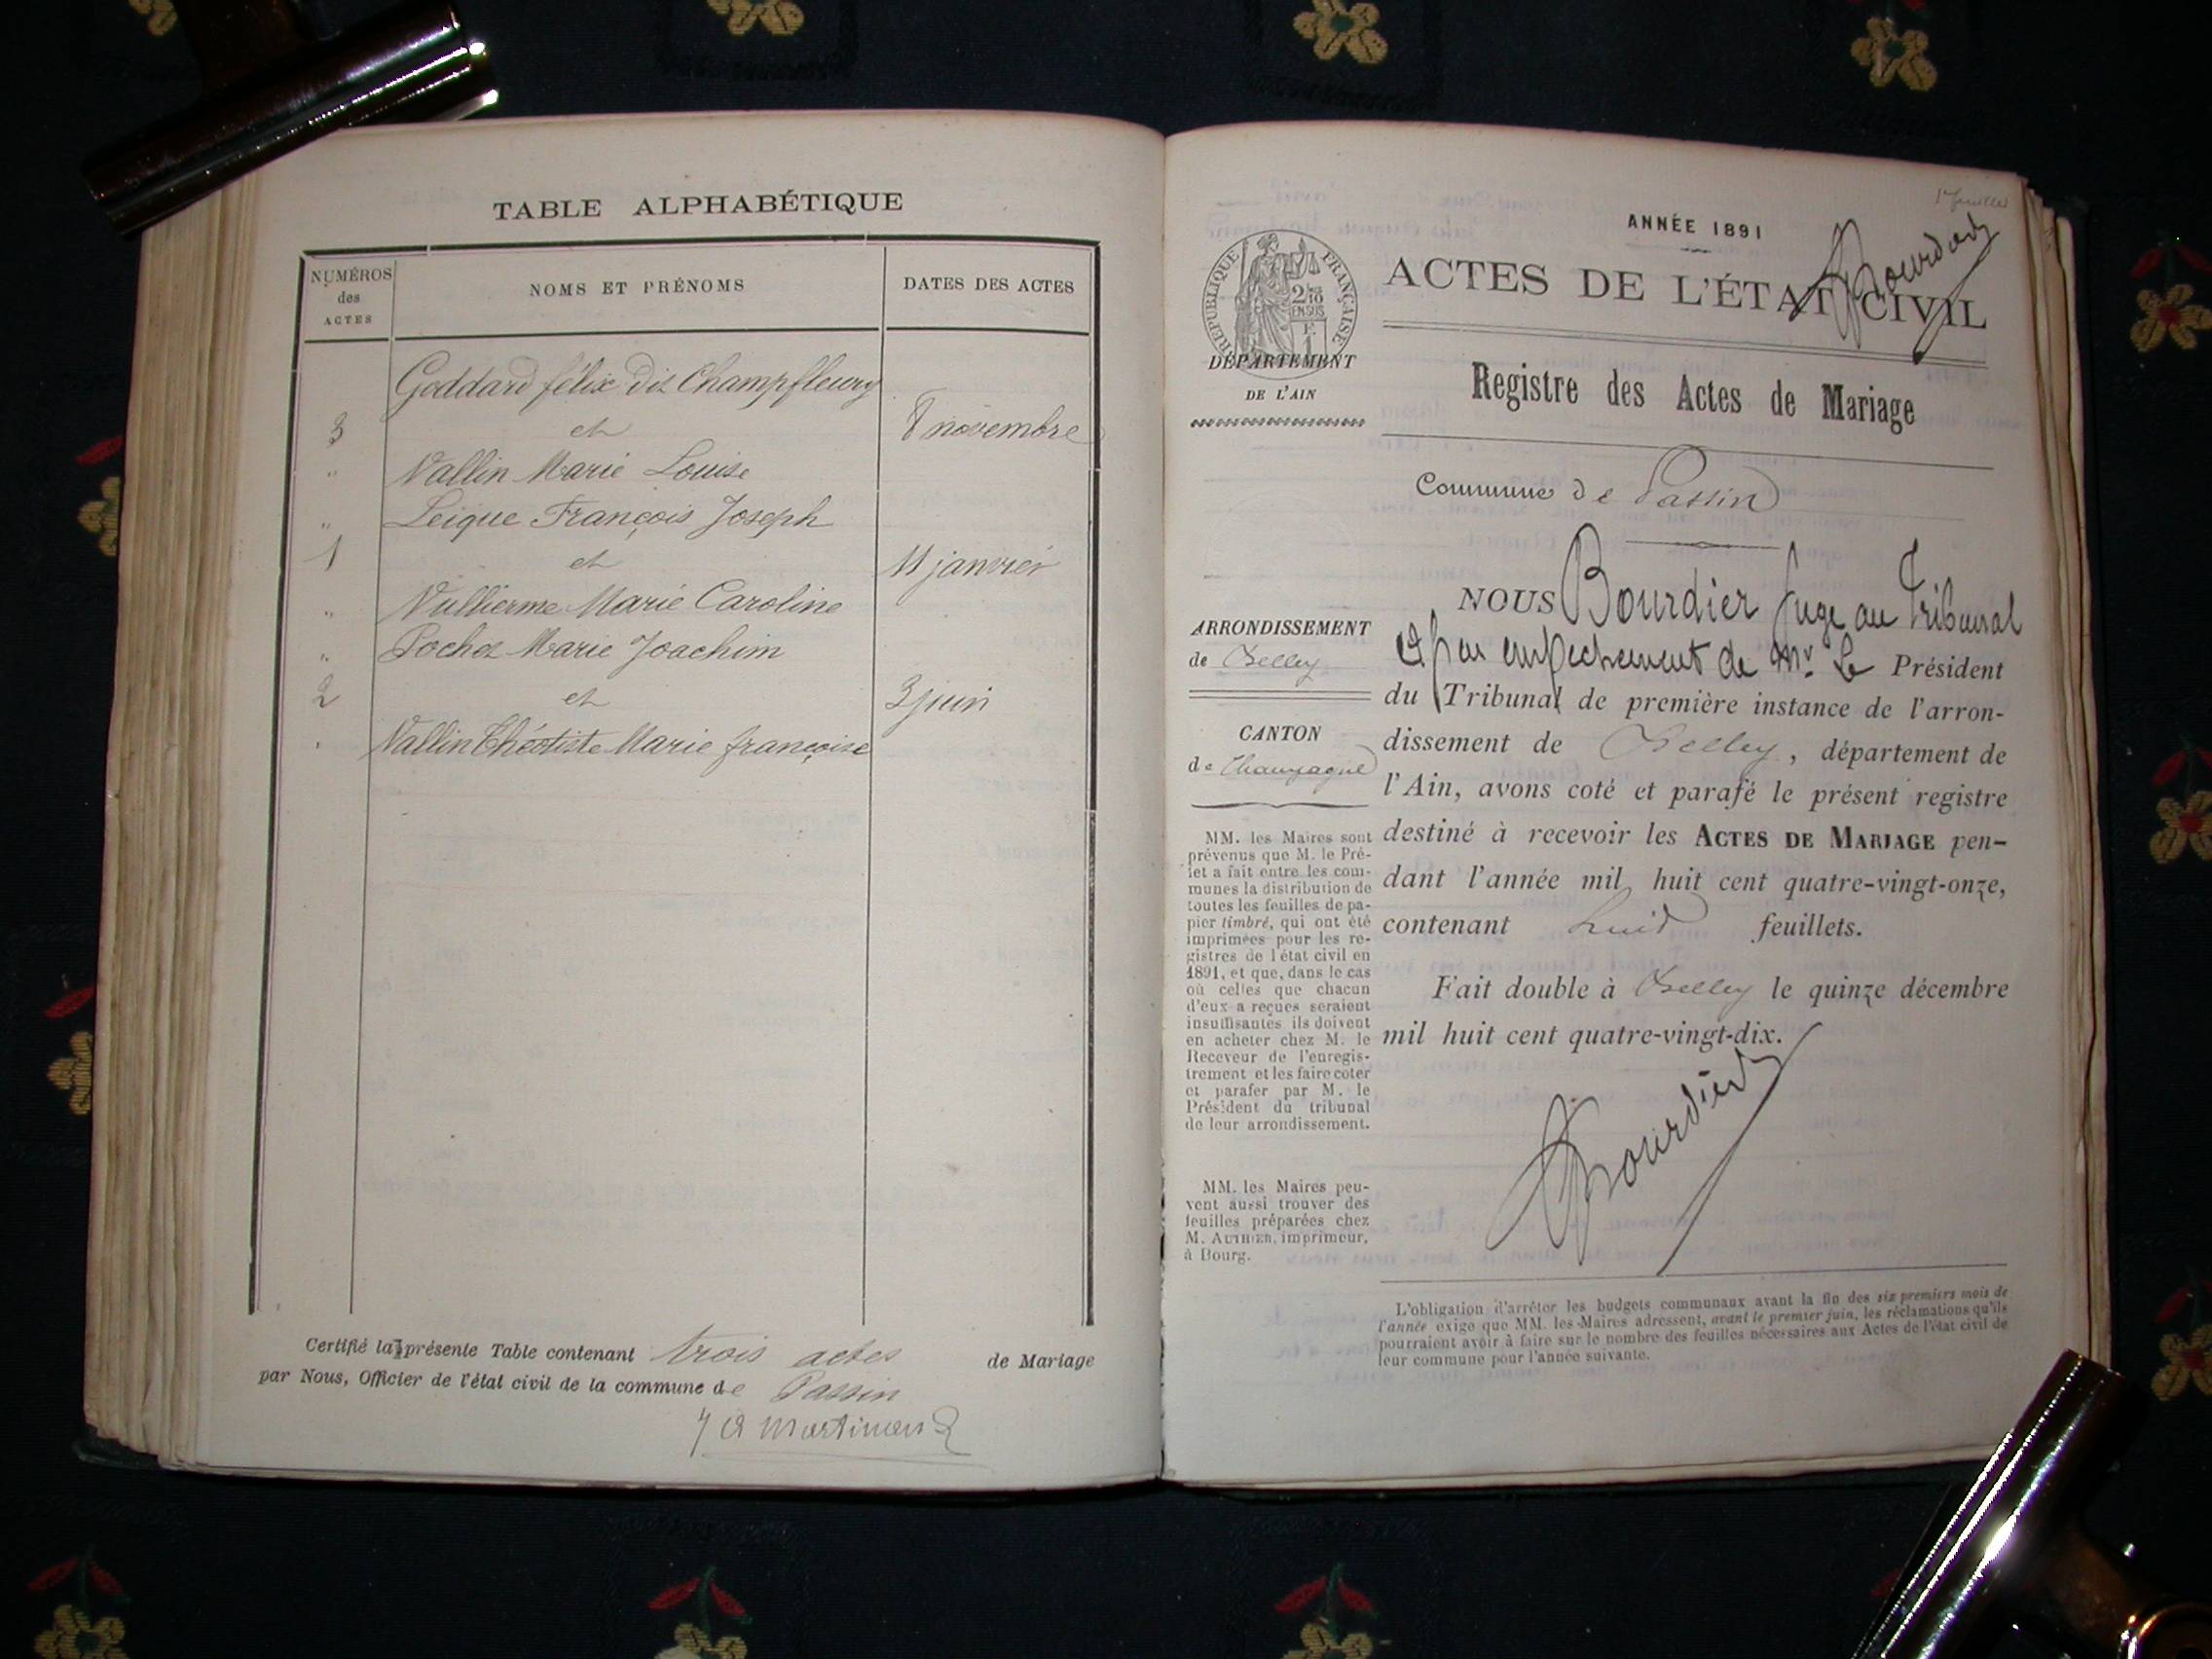 TABLE ALPHABÉTIQUE
NUMÉROS
des
ACTES
NOMS ET PRÉNOMS
DATES DES ACTES
Goddard félix dit Champfleury
3 et 8 novembre
" Vallin Marie Louise
" Leique François Joseph
1 et 11 janvier
" Vullierme Marie Caroline
" Pochet Marie Joachim
2 et 3 juin
" Vallin Théotiste Marie françoise
Certifié la présente Table contenant trois actes de Mariage
par Nous, Officier de l'état civil de la commune de Passin
1er feuillet
ANNÉE 1891
Bourdier
ACTES DE L'ÉTAT CIVIL
RÉPUBLIQUE FRANÇAISE
2/10
EN SUS
DÉPARTEMENT
DE L'AIN
Registre des Actes de Mariage
Commune de Passin
NOUS Bourdier Juge au Tribunal
et par empêchement de Mr. Le Président
du Tribunal de première instance de l'arron-
dissement de Belley, département de
l'Ain, avons coté et parafé le présent registre
destiné à recevoir les ACTES DE MARIAGE pen-
dant l'année mil huit cent quatre-vingt-onze,
contenant huit feuillets.
Fait double à Belley le quinze décembre
mil huit cent quatre-vingt-dix.
Bourdier
ARRONDISSEMENT
de Belley
CANTON
de Champagne
MM. les Maires sont
prévenus que M. le Pré-
fet a fait entre les com-
munes la distribution de
toutes les feuilles de pa-
pier timbré, qui ont été
imprimées pour les re-
gistres de l'état civil en
1891, et que, dans le cas
où celles que chacun
d'eux a reçues seraient
insuffisantes ils doivent
en acheter chez M. le
Receveur de l'enregis-
trement et les faire coter
et parafer par M. le
Président du tribunal
de leur arrondissement.
MM. les Maires peu-
vent aussi trouver des
feuilles préparées chez
M. AUTHIER, imprimeur,
à Bourg.
L'obligation d'arrêter les budgets communaux avant la fin des six premiers mois de
l'année exige que MM. les Maires adressent, avant le premier juin, les réclamations qu'ils
pourraient avoir à faire sur le nombre des feuilles nécessaires aux Actes de l'état civil de
leur commune pour l'année suivante.